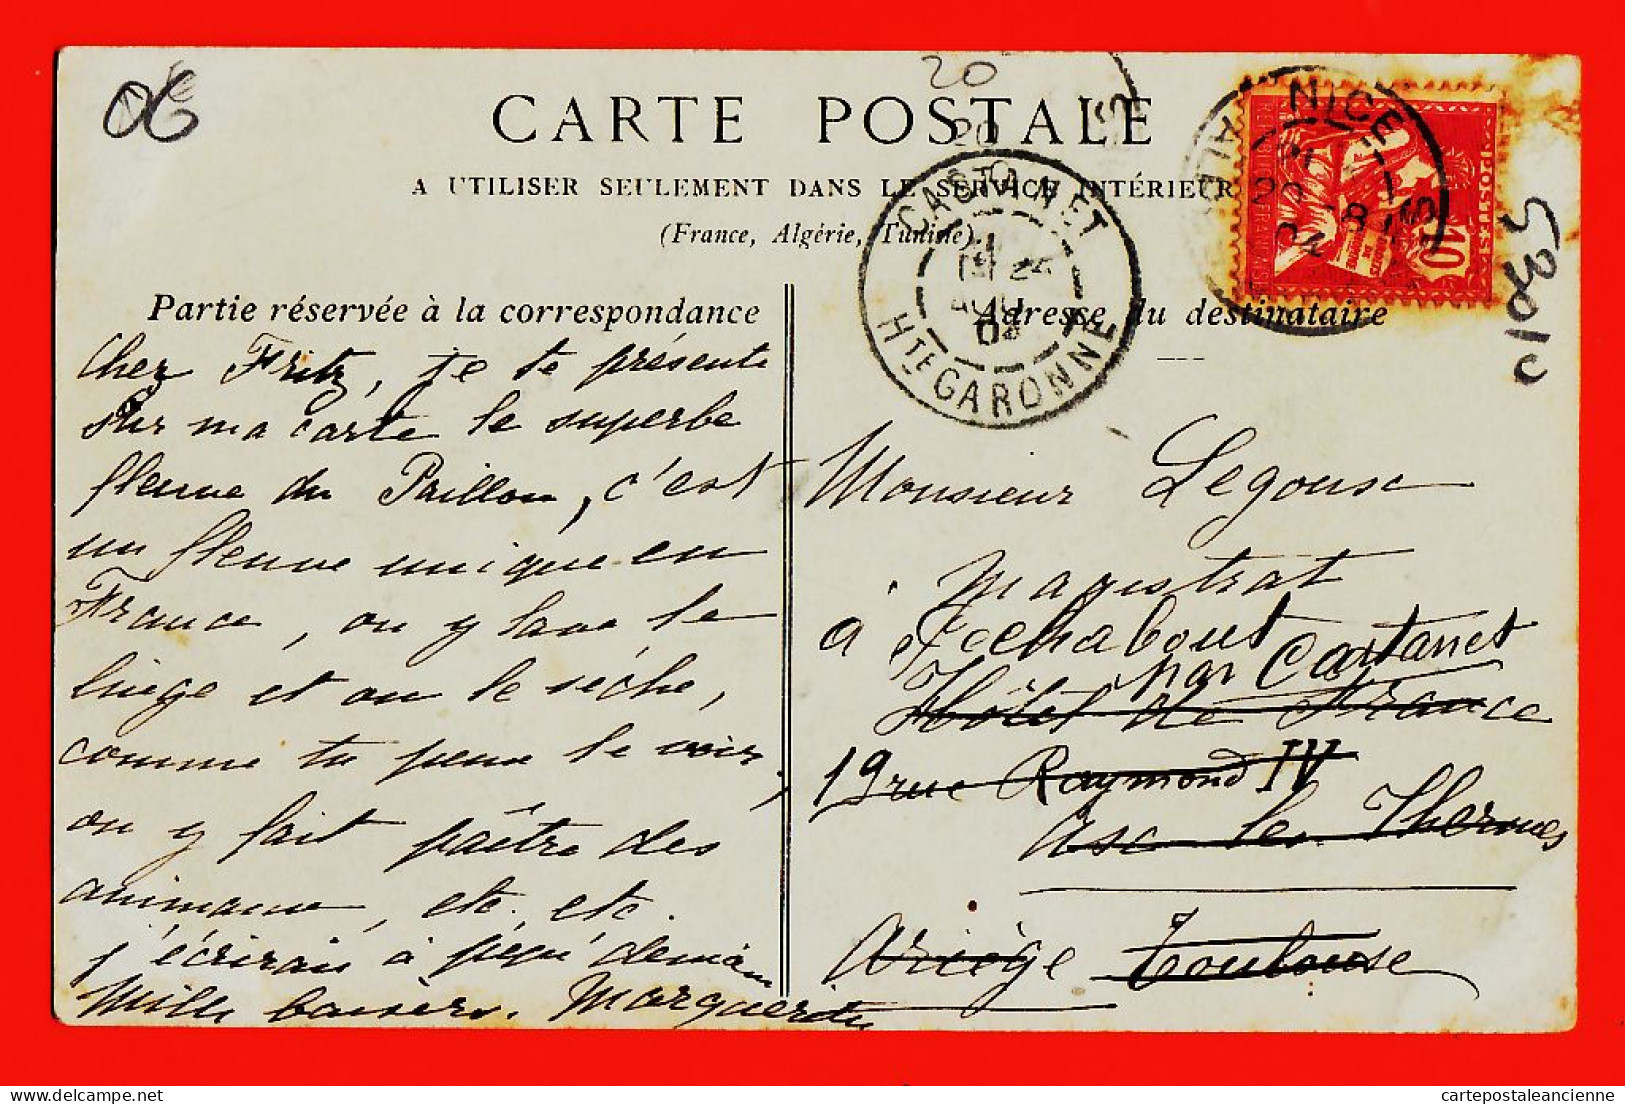 06
20
20
CARTE POSTALE
A UTILISER SEULEMENT DANS LE SERVICE INTÉRIEUR
(France, Algérie, Tunisie)
CASTANET
24
04
Hte GARONNE
NICE
20 8
04
10
POSTES
Partie réservée à la correspondance
Cher Fritz, je te présente
sur ma carte le superbe
fleuve du Paillon, c'est
un fleuve unique en
France, on y lave le
linge et on le sèche,
comme tu peux le voir,
on y fait paître des
animaux, etc. etc.
j'écrirai à demain
Mille baisers. Marguerite
Adresse du destinataire
Monsieur Legouse
Magistrat
à Pechabout
par Castanet
Hôtel de France
19 rue Raymond IV
Ax les Thermes
Ariège Toulouse
cartepostaleancienne